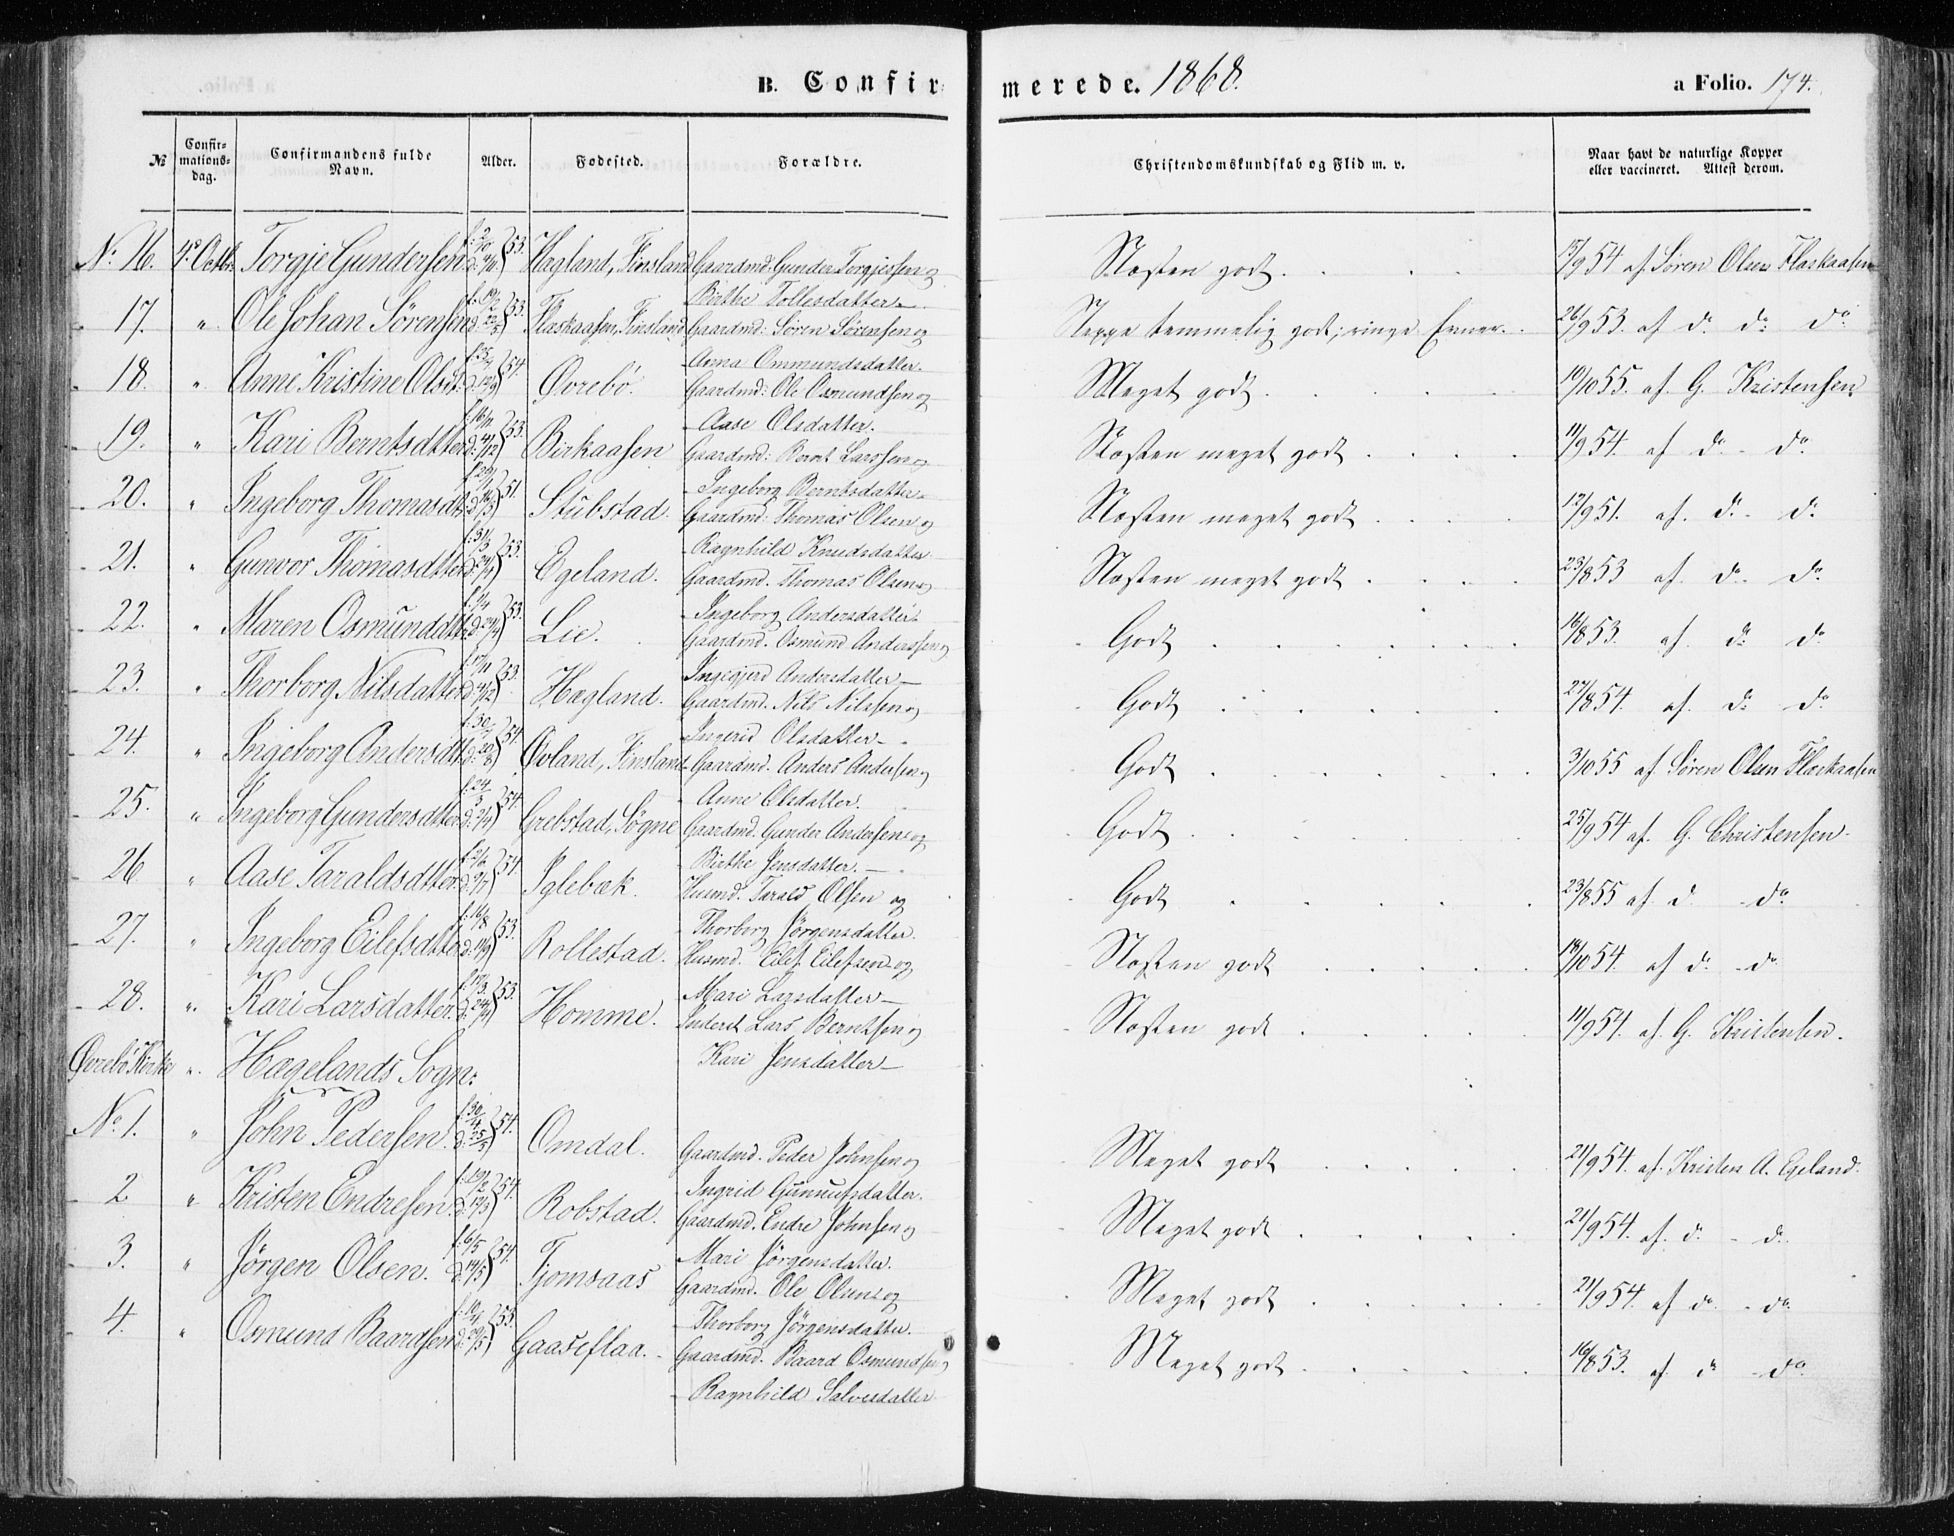 B. Confirmerede. 1868.
a Folio. 174.
No
Confirmationsdag.
Confirmandens fulde Navn.
Alder.
Fødested.
Forældre.
Christendomskundskab og Flid m. v.
Naar havt de naturlige Kopper eller vaccineret. Attest derom.
No. 16. 4de Octbr. Torgje Gundersen f: 2/10 53. Hægland, Finsland Gaardmd. Gunder Torgjessen og Næsten godt. 15/9 54 af Søren Olsen Flaskaasen
Birthe Tollesdatter
17. " Ole Johan Sørensen 53. Flaskaasen, Finsland Gaardmd: Søren Sørensen og Neppe temmelig godt; ringe Evner. 26/9 53. af do do do
Anna Ommundsdatter.
18. " Anne Kristine Olsd. 54. Øvrebö. Gaardmd: Ole Osmundsen og Meget godt. 10/10 55. af G. Kristensen
Aase Olsdatter.
19. " Kari Berntsdtter 53. Birkaasen Gaardmd: Bernt Larssen og Næsten meget godt 11/9 54. af do do
Ingeborg Berntsdatter
20. " Ingeborg Thomasdt. 51. Stubstad. Gaardmd: Thomas Olsen og Næsten meget godt 12/9 51. af. do do
Ragnhild Knudsdatter
21. " Gunvor Thomasdtter 53. Egeland. Gaardmd. Thomas Olsen og Næsten meget godt 23/8 53 af. do do
Ingeborg Andersdatter
22. " Maren Osmunddtter 53. Lie. Gaardmd. Osmund Anderssen og Godt 16/8 53. af do do
Ingegjerd Andersdatter
23. " Thorborg Nilsdatter 53. Hægland. Gaardmd. Nils Nilssen og Godt 27/8 54. af. do do
Ingerid Olsdatter
24. " Ingeborg Andersdt. 54. Øvland, Finsland Gaardmd. Anders Andersen og Godt 3/10 55 af Søren Olsen Flaskaasen
Anne Olsdatter.
25. " Ingeborg Gundersdtter 54. Grebstad, Søgne Gaardmd. Gunder Andersen og Godt 25/9 54 af. G. Christensen
Birthe Jensdatter.
26 " Aase Taraldsdtter 54. Iglebæk. Husmd. Tarald Olsen og Godt 23/8 55 af d do
Thorborg Jörgensdatter.
27. " Ingeborg Eilefsdtter f: 16/8 53. Rollestad. Husmd. Eilef Eilefsen og Næsten godt 18/10 54. af do do
Mari Larsdatter
28. " Kari Larsdatter. 53. Homme. Inderst Lars Berntsen og Næsten godt 11/9 54. af. G. Kristensen.
Kari Jensdatter
Øvrebö Kirke ". Hægelands Sogn:
No. 1. " John Pedersen. f: 30/4 d: 25/5 54. Omdal. Gaardmd. Peder Johnsen og Meget godt 21/9 54. af. Kristen A. Egeland.
Ingrid Gunnufsdatter.
2 " Kristen Endresen. 54. Robstad. Gaardmd. Endre Johnsen og Meget godt 21/9 54. af. d. d.
Mari Jörgensdatter.
3. " Jörgen Olsen. f: 6/5 d: 14/5 54. Fjomsaas Gaardmd. Ole Olsen og Meget godt 21/9 54. af do do
Thorborg Jörgensdatter.
4. " Osmund Baardsen 53. Gaaseflaa. Gaardmd. Baard Osmundsen og Meget godt 16/8 53. af do do
Ragnhild Salvesdatter